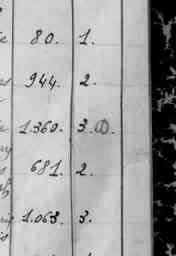 80. 1.
944. 2.
1.360. 3.
681. 2.
1.063. 3.